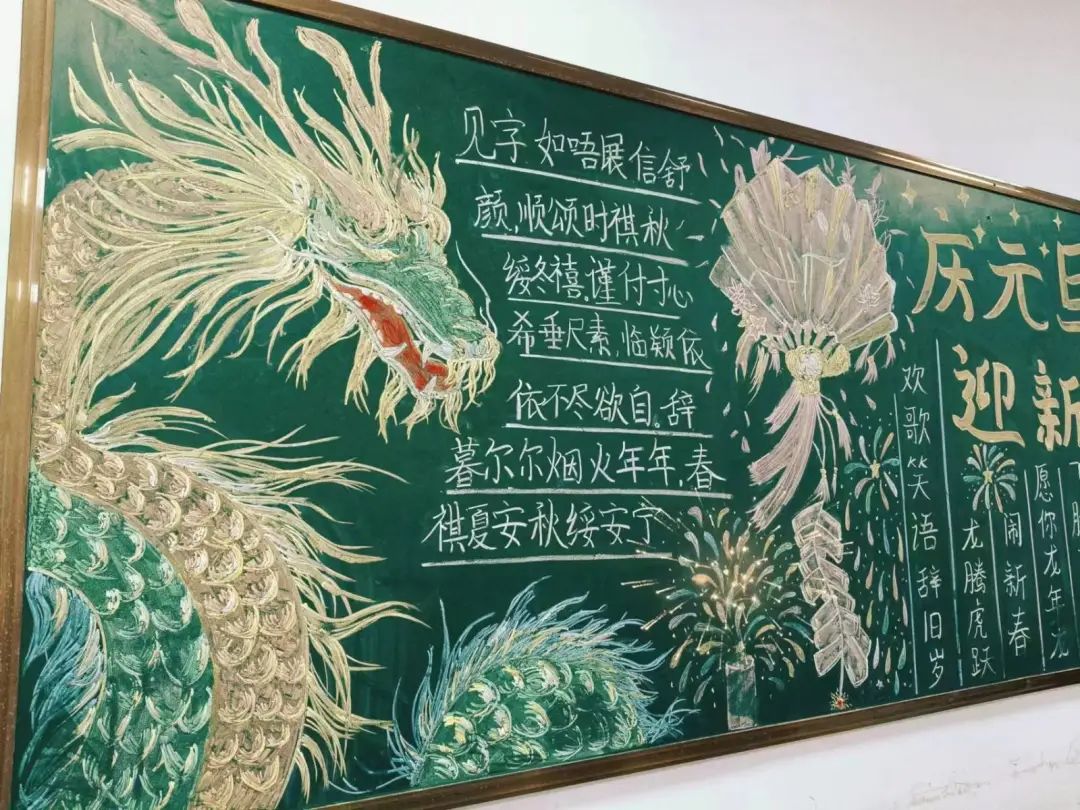 见字如唔展信舒
颜,顺颂时祺秋
绥冬禧.谨付寸心
希垂尺素,临颖依
依不尽欲自.辞
暮尔尔烟火年年,春
祺夏安秋绥安宁
庆元旦
迎新
欢歌笑语辞旧岁
龙腾虎跃
闹新春
愿你龙年龙